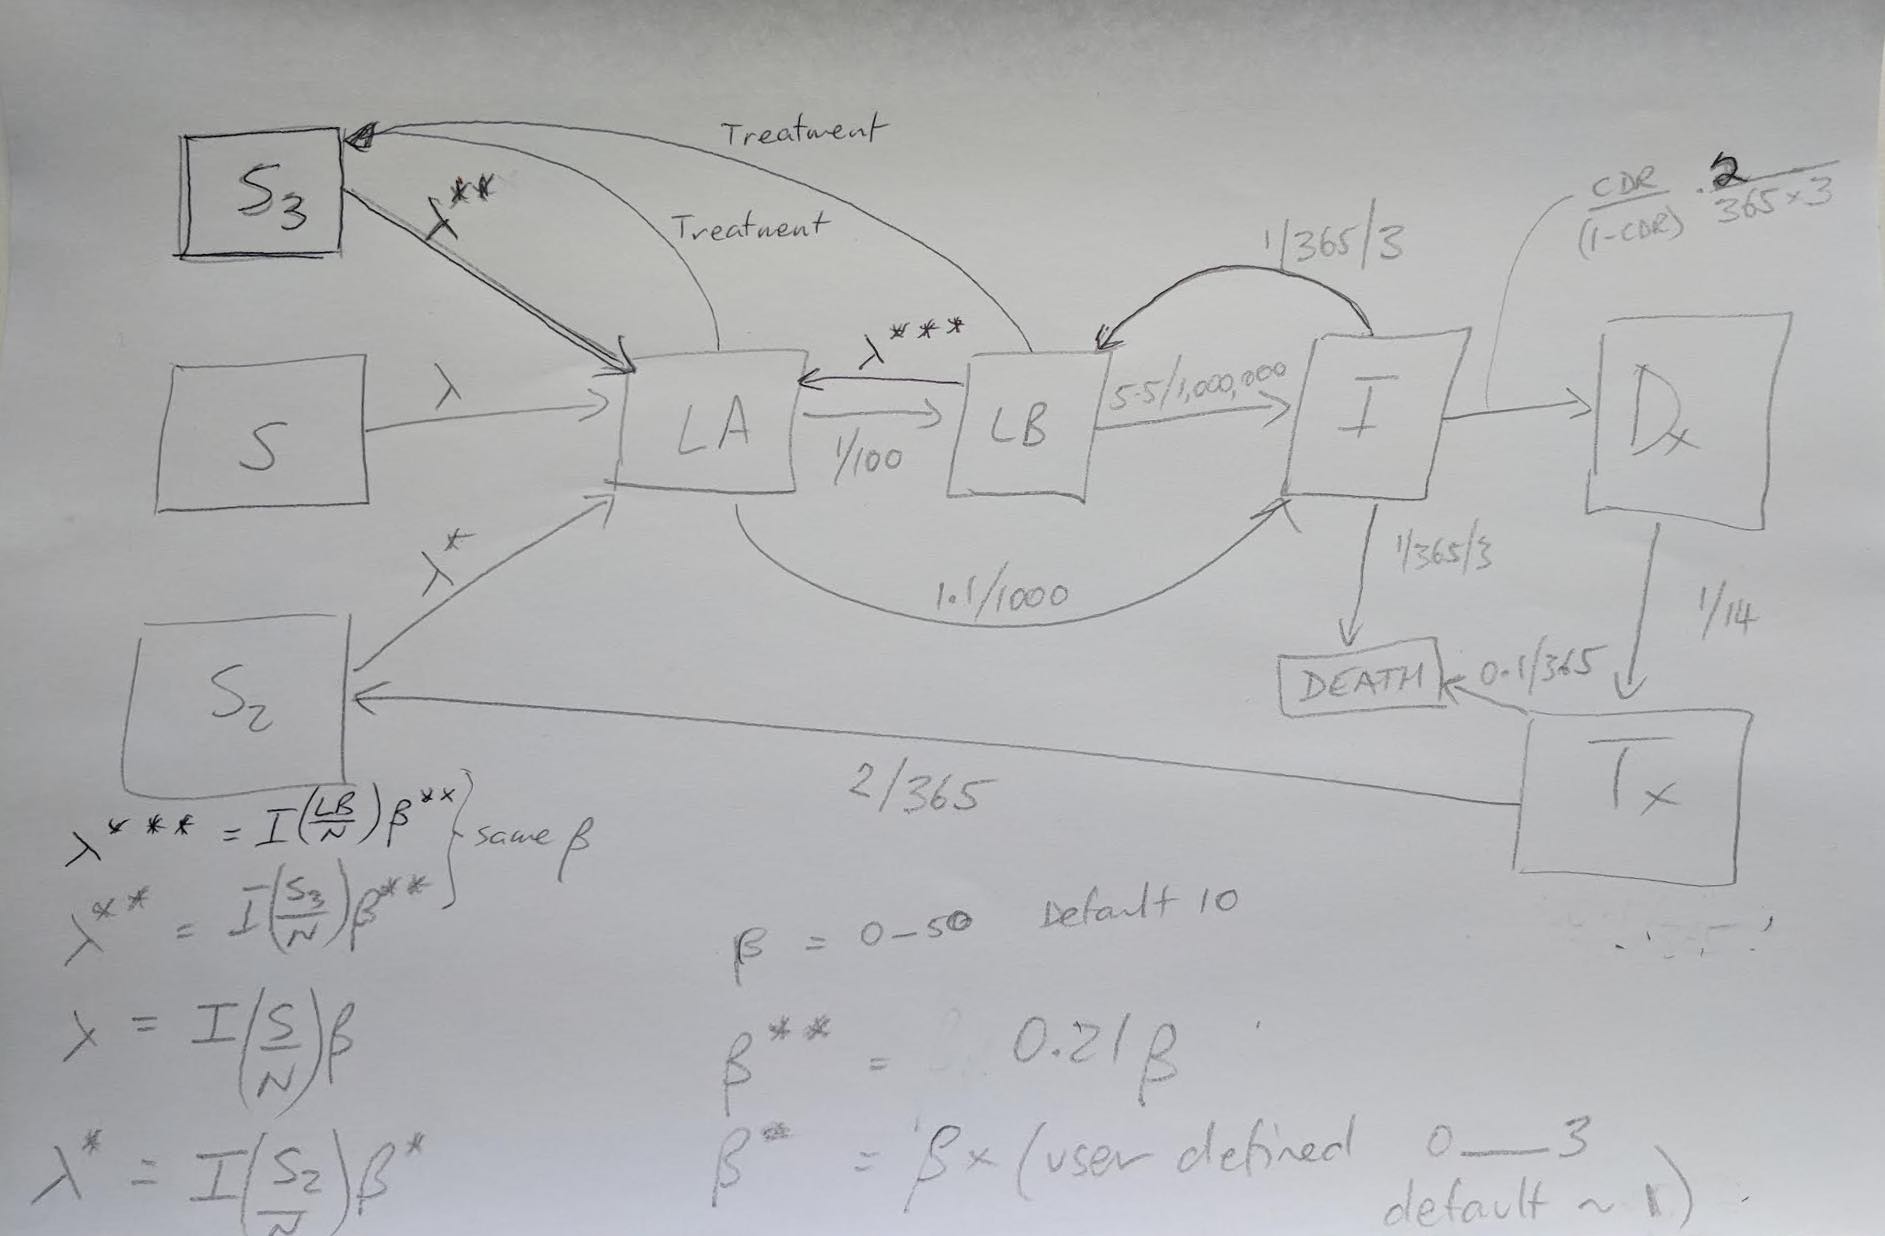 Treatment
S₃
λ**
Treatment
CDR/(1-CDR) · 2/365×3
1/365/3
λ***
S
λ
LA
1/100
LB
5.5/1,000,000
I
Dx
λ*
1.1/1000
1/365/3
1/14
S₂
DEATH
0.1/365
2/365
Tx
λ*** = I(LB/N)β** } same β
λ** = I(S₃/N)β**
β = 0-50 Default 10
λ = I(S/N)β
β** = 0.21β
λ* = I(S₂/N)β*
β* = β× (user defined 0__3
default ~ 1)